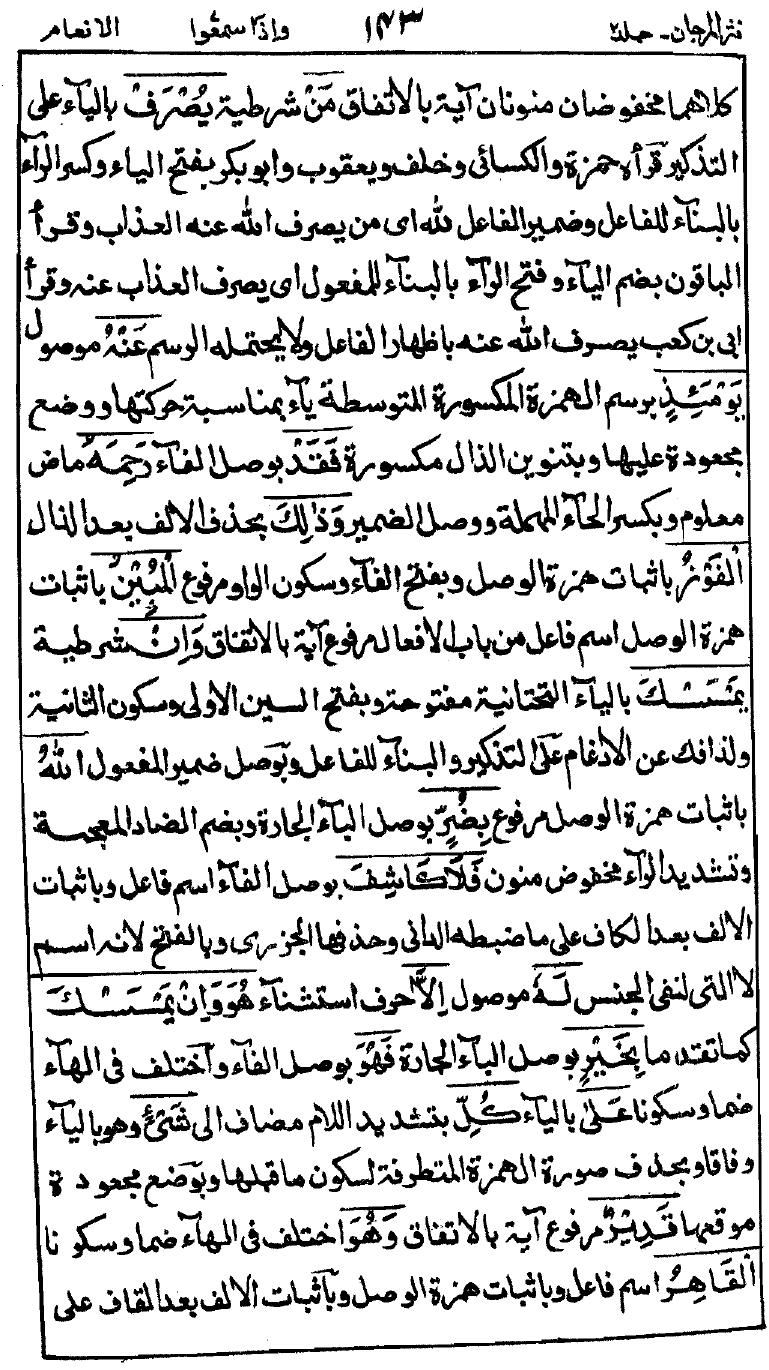 نثر المرجان - جلد ٢ ١٧٣ واذا سمعوا الانعام
كلاهما مخفوضان منونان آية بالاتفاق مَنْ شرطية يُصْرَفْ بالياء على
التذكير قرأه حمزة والكسائى وخلف ويعقوب وابو بكر بفتح الياء وكسر الرآء
بالبنآء للفاعل وضمير الفاعل لله اى من يصرف الله عنه العذاب وقرأ
الباقون بضم اليآء وفتح الرآء بالبنآء للمفعول اى يصرف العذاب عنه وقرأ
ابى بن كعب يصرف الله عنه باظهار الفاعل ولا يحتمله الرسم عَنْهُ موصول
يَوْمَئِذٍ برسم الهمزة المكسورة المتوسطة يآء بمناسبة حركتها ووضع
مجعودة عليها وبتنوين الذال مكسورة فَقَدْ بوصل الفآء رَحِمَهُ ماض
معلوم وبكسر الحآء المهملة ووصل الضمير وَذٰلِكَ بحذف الالف بعد الذال
الْفَوْزُ باثبات همزة الوصل وبفتح الفآء وسكون الواو مرفوع الْمُبِيْنُ باثبات
همزة الوصل اسم فاعل من باب الافعال مرفوع آية بالاتفاق وَاِنْ شرطية
يَمْسَسْكَ باليآء التحتانية مفتوحة وبفتح السين الاولى وسكون الثانية
ولذا فك عن الادغام على التذكير والبنآء للفاعل وبوصل ضمير المفعول اللهُ
باثبات همزة الوصل مرفوع بِضُرٍّ بوصل البآء الجارة وبضم الضاد المعجمة
وتشديد الرآء مخفوض منون فَلَا كَاشِفَ بوصل الفآء اسم فاعل وباثبات
الالف بعد الكاف على ما ضبطه الدانى وحذفها الجزرى وبالفتح لانه اسم
لا التى لنفى الجنس لَهٗ موصول اِلَّا حرف استثنآء هُوَ وَاِنْ يَمْسَسْكَ
كما تقدم مـا بِخَيْرٍ بوصل البآء الجارة فَهُوَ بوصل الفآء واختلف فى الهآء
ضما وسكونا عَلٰى باليآء كُلِّ بتشديد اللام مضاف الى شَىْءٍ وهو باليآء
وفاقا وبحذف صورة الهمزة المتطرفة لسكون ما قبلها وبوضع مجعودة
موقعها قَدِيْرٌ مرفوع آية بالاتفاق وَهُوَ اختلف فى الهآء ضما وسكونا
الْقَاهِرُ اسم فاعل وباثبات همزة الوصل وباثبات الالف بعد القاف على